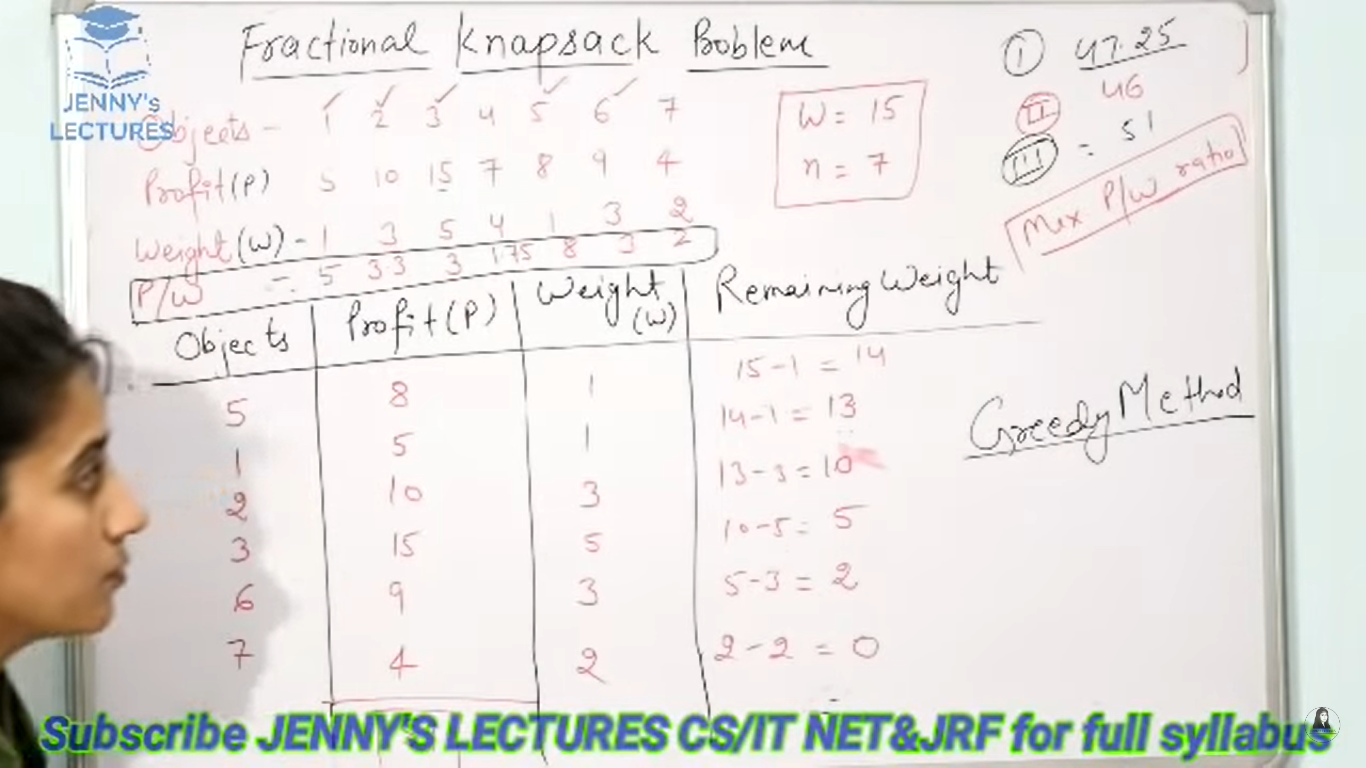 Fractional Knapsack Problem
JENNY's
LECTURES
Objects - 1 2 3 4 5 6 7
Profit (P) 5 10 15 7 8 9 4
Weight (W) - 1 3 5 4 1 3 2
P/W = 5 3.3 3 1.75 8 3 2
W = 15
n = 7
I 47.25
II 46
III = 51
Max P/W ratio
Objects Profit (P) Weight (W) Remaining Weight
5 8 1 15-1 = 14
1 5 1 14-1 = 13
2 10 3 13-3 = 10
3 15 5 10-5 = 5
6 9 3 5-3 = 2
7 4 2 2-2 = 0
Greedy Method
Subscribe JENNY'S LECTURES CS/IT NET&JRF for full syllabus